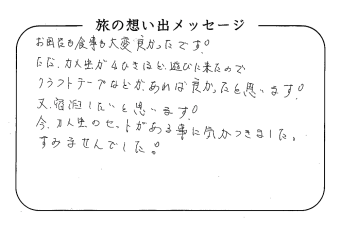 旅の想い出メッセージ
お風呂も食事も大変良かったです。
ただ、カメ虫が4ひきほど遊びに来たので
クラフトテープなどがあれば良かったと思います。
又、宿泊したいと思います。
今、カメ虫のセットがある事に気がつきました。
すみませんでした。